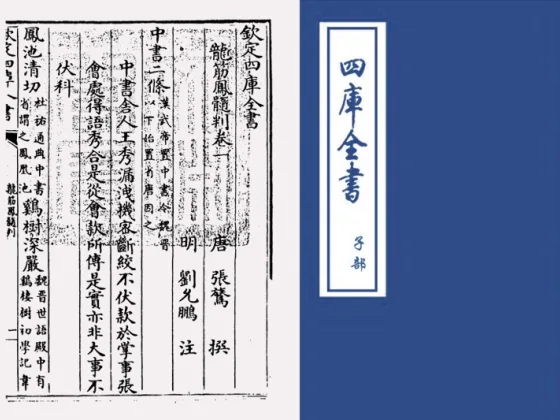 欽定四庫全書
龍筋鳳髓判卷一
唐 張鷟 撰
明 劉允鵬 注
中書二條 漢武帝置中書令魏晉以下始置省唐因之
中書舍人王秀漏洩機密斷絞不伏款於掌事張
會處得語秀合是從會款所傳是實亦非大事不
伏科
鳳池清切 杜祐通典中書省謂之鳳凰池 鷄樹深嚴 魏晉世語殿中有鷄棲樹初學記韋
欽定四庫全書
龍筋鳳髓判
一
四庫全書
子部